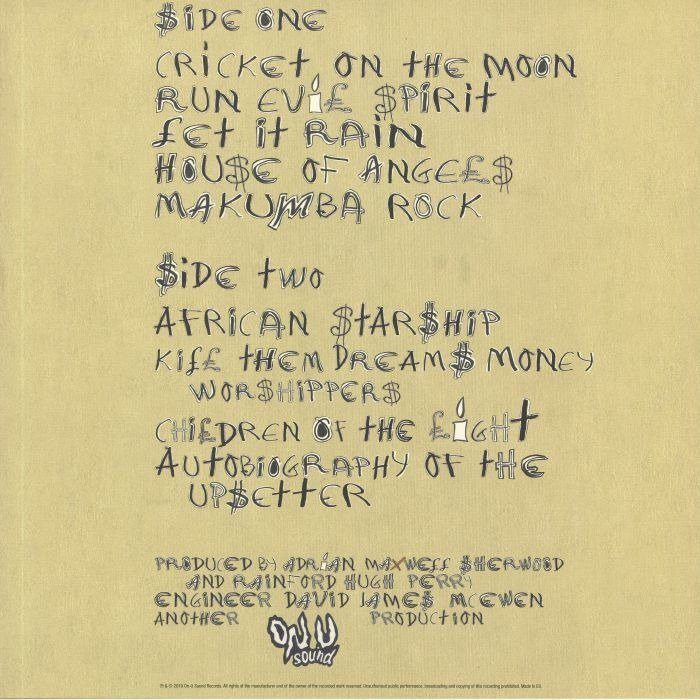 $iDE ONE
CRiCKEt ON tHE MOON
RUN EVi£ $PiRit
£Et it RAiN
HOU$E OF ANGE£$
MAKUMBA ROCK
$iDE tWO
AFRiCAN $tAR$HiP
Ki££ tHEM DREAM$ MONEY
WOR$HiPPER$
CHi£DREN OF tHE £iGHt
AUtOBiOGRAPHY OF tHE
UP$EttER
PRODUCED BY ADRiAN MAXWE££ $HERWOOD
AND RAiNFORD HUGH PERRY
ENGiNEER DAViD JAME$ MCEWEN
ANOtHER ON U sound PRODUCtiON
℗ & © 2019 On-U Sound Records. All rights of the manufacturer and of the owner of the recorded work reserved. Unauthorised public performance, broadcasting and copying of this recording prohibited. Made in EU.